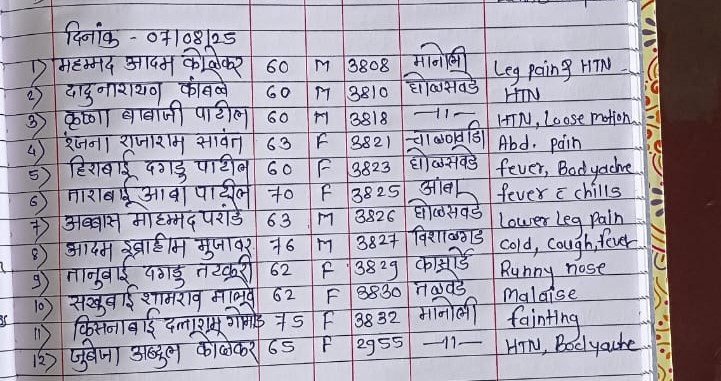 दिनांक - 07/08/25
1) महम्मद आदम कोळेकर 60 M 3808 मानोली Leg pain & HTN
2) दादु नारायण कांबळे 60 M 3810 घोळसवडे HTN
3) कृष्णा बाबाजी पाटील 60 M 3818 -11- HTN, Loose motion
4) रंजना राजाराम सावंत 63 F 3821 चाळणवाडी Abd. pain
5) हिराबाई दगडु पाटील 60 F 3823 घोळसवडे fever, Bodyache
6) ताराबाई आबा पाटील 70 F 3825 आंबा fever c̄ chills
7) अब्बास मोहम्मद परांडे 63 M 3826 घोळसवडे Lower Leg Pain
8) आदम इब्राहीम मुजावर 76 M 3827 विशाळगड cold, cough, fever
9) तानुबाई दगडु तटकरी 62 F 3829 कासार्डे Runny nose
10) सखुबाई शामराव 62 F 3830 तळवडे Malaise
11) किसनाबाई दत्ताराम 75 F 3832 मानोली fainting
12) जुबेजा अब्दुल कोळेकर 65 F 2955 -11- HTN, Bodyache